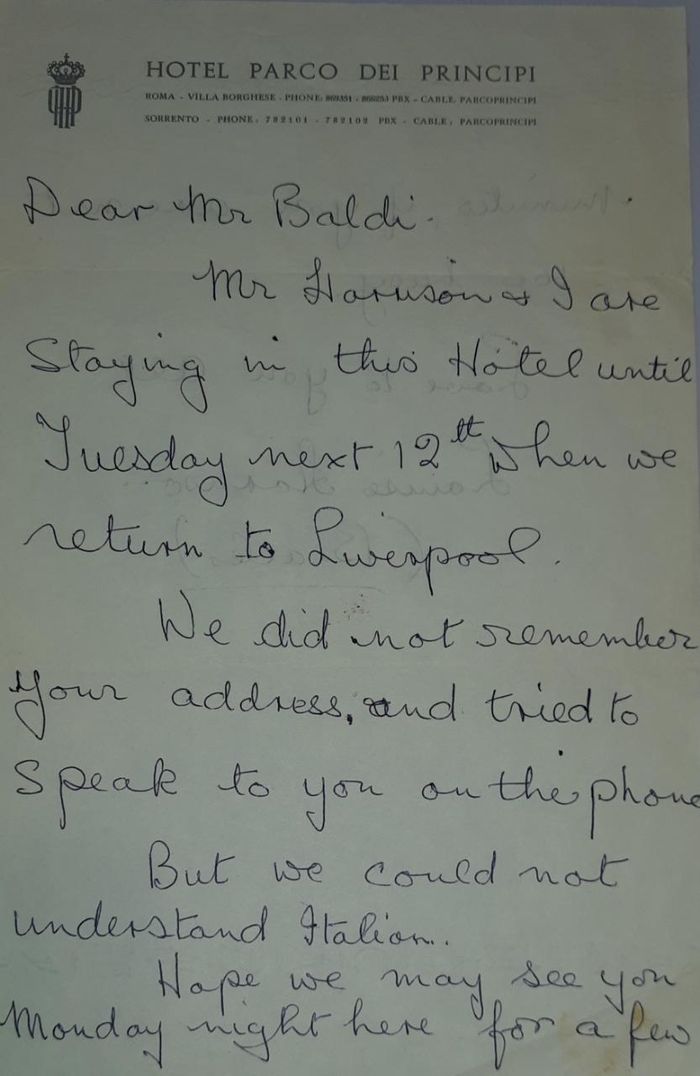 HOTEL PARCO DEI PRINCIPI
ROMA - VILLA BORGHESE - PHONE: PBX - CABLE, PARCOPRINCIPI
SORRENTO - PHONE: 782101 - 782102 PBX - CABLE, PARCOPRINCIPI
Dear Mr Baldi.
Mr Harrison & I are
Staying in this Hotel until
Tuesday next 12th when we
return to Liverpool.
We did not remember
your address, and tried to
speak to you on the phone
But we could not
understand Italian..
Hope we may see you
Monday night here for a few